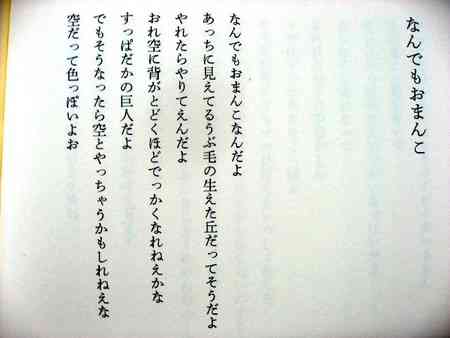 なんでもおまんこ
なんでもおまんこなんだよ
あっちに見えてるうぶ毛の生えた丘だってそうだよ
やれたらやりてえんだよ
おれ空に背がとどくほどでっかくなれねえかな
すっぱだかの巨人だよ
でもそうなったら空とやっちゃうかもしれねえな
空だって色っぽいよお